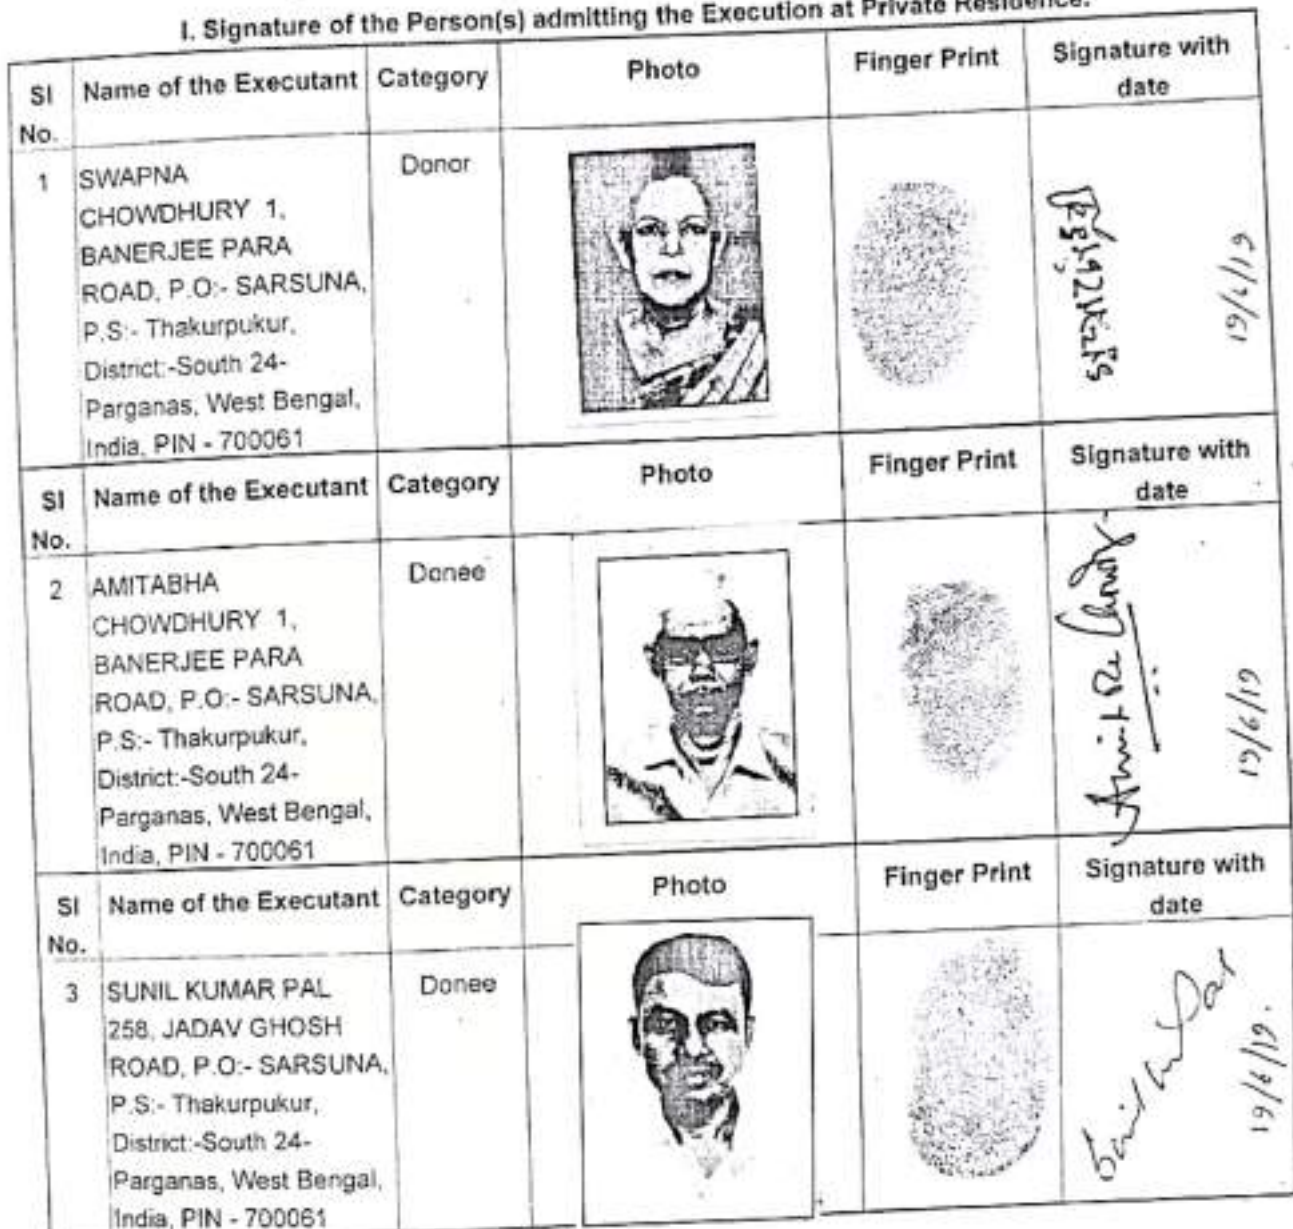 I. Signature of the Person(s) admitting the Execution at Private Residence.
Sl No. Name of the Executant Category Photo Finger Print Signature with date
1 SWAPNA Donor
CHOWDHURY 1,
BANERJEE PARA
ROAD, P.O:- SARSUNA,
P.S:- Thakurpukur,
District:-South 24-
Parganas, West Bengal,
India, PIN - 700061
19/6/19
Sl No. Name of the Executant Category Photo Finger Print Signature with date
2 AMITABHA Donee
CHOWDHURY 1,
BANERJEE PARA
ROAD, P.O:- SARSUNA,
P.S:- Thakurpukur,
District:-South 24-
Parganas, West Bengal,
India, PIN - 700061
19/6/19
Sl No. Name of the Executant Category Photo Finger Print Signature with date
3 SUNIL KUMAR PAL Donee
258, JADAV GHOSH
ROAD, P.O:- SARSUNA,
P.S:- Thakurpukur,
District:-South 24-
Parganas, West Bengal,
India, PIN - 700061
19/6/19.